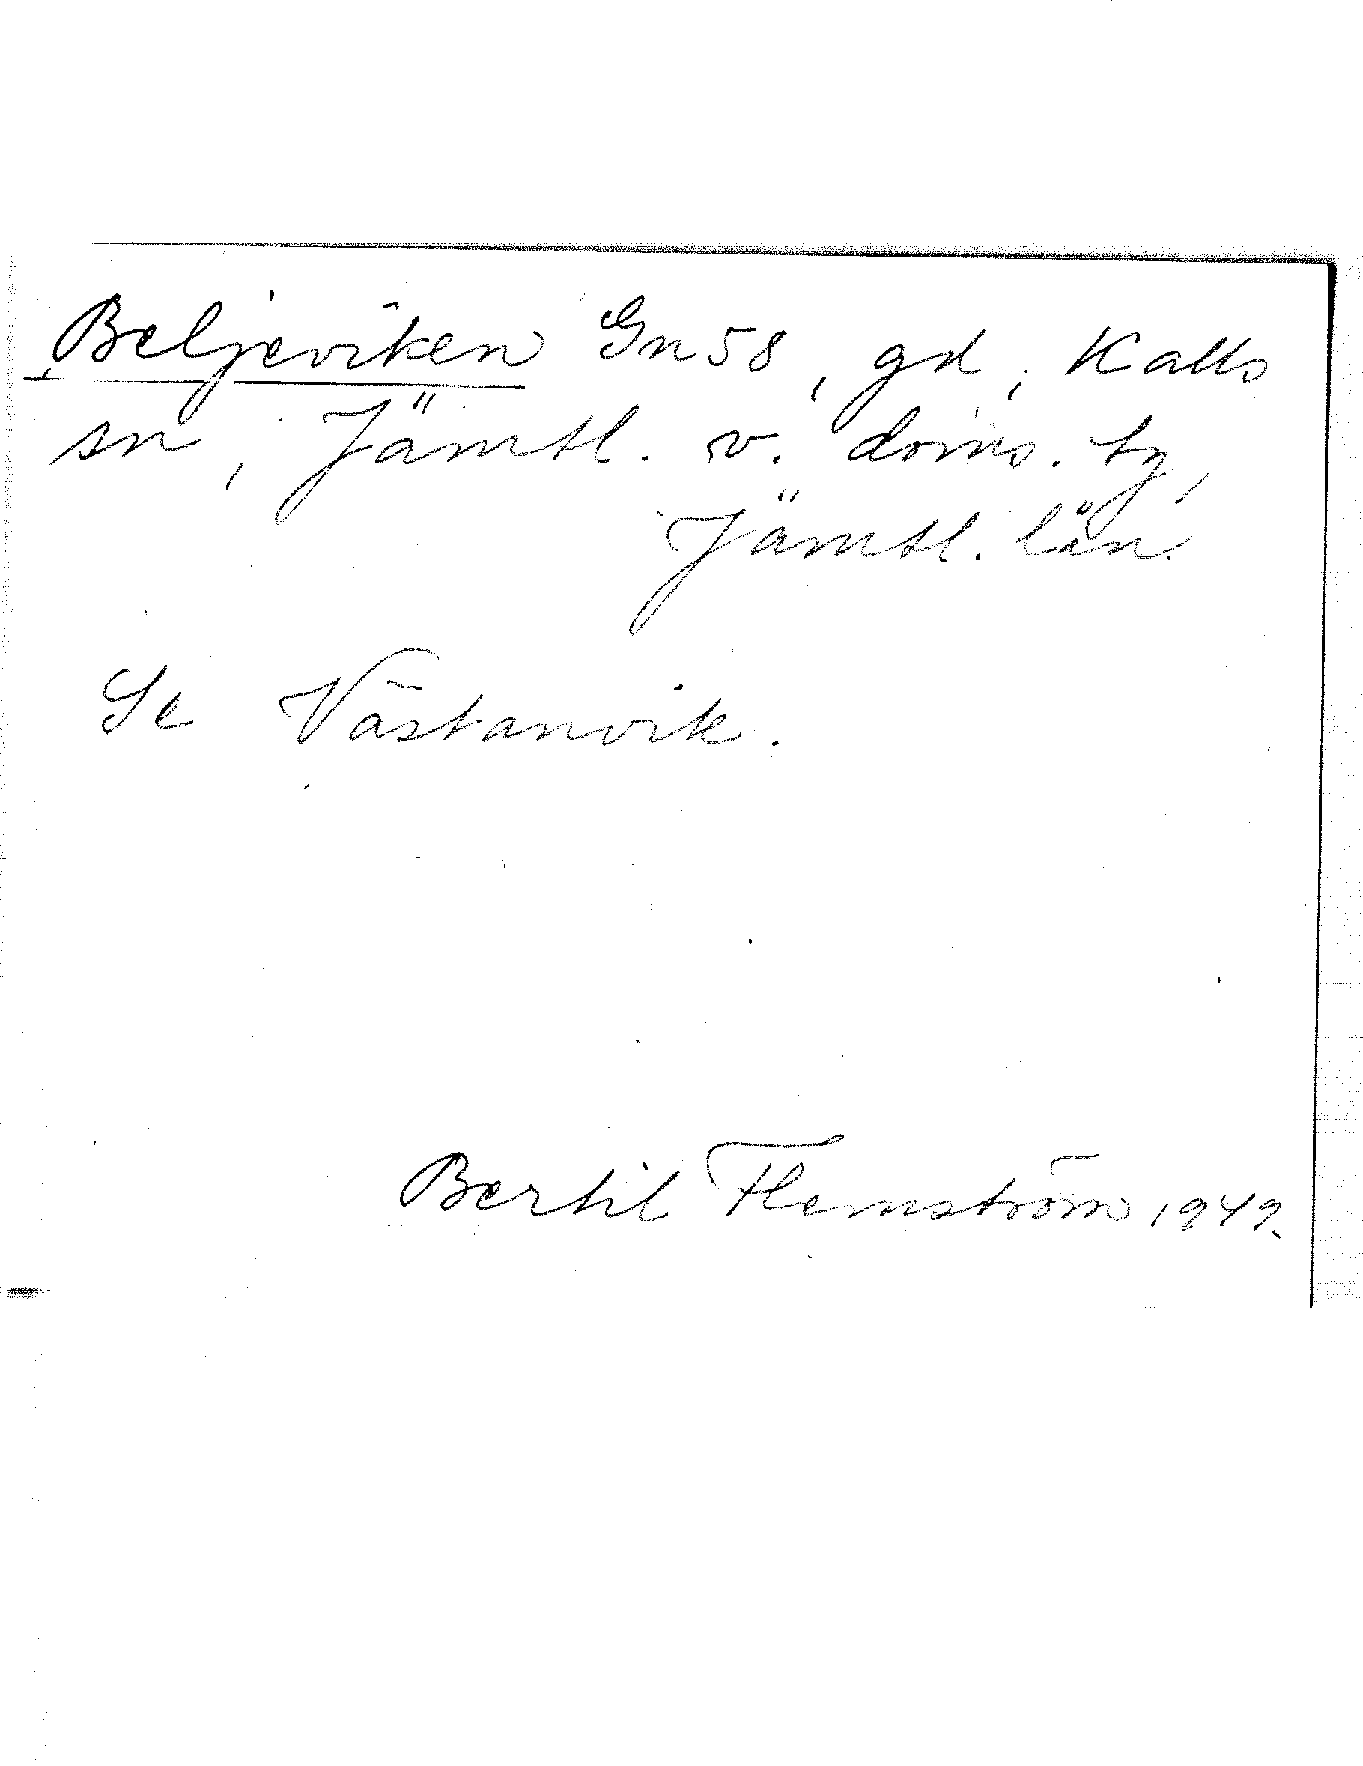 Beljeviken Gn 58, gd, Kalls
sn, Jämtl. v. doms. tg,
Jämtl. län.
Se Västanvik.
Bertil Flemström 1949.